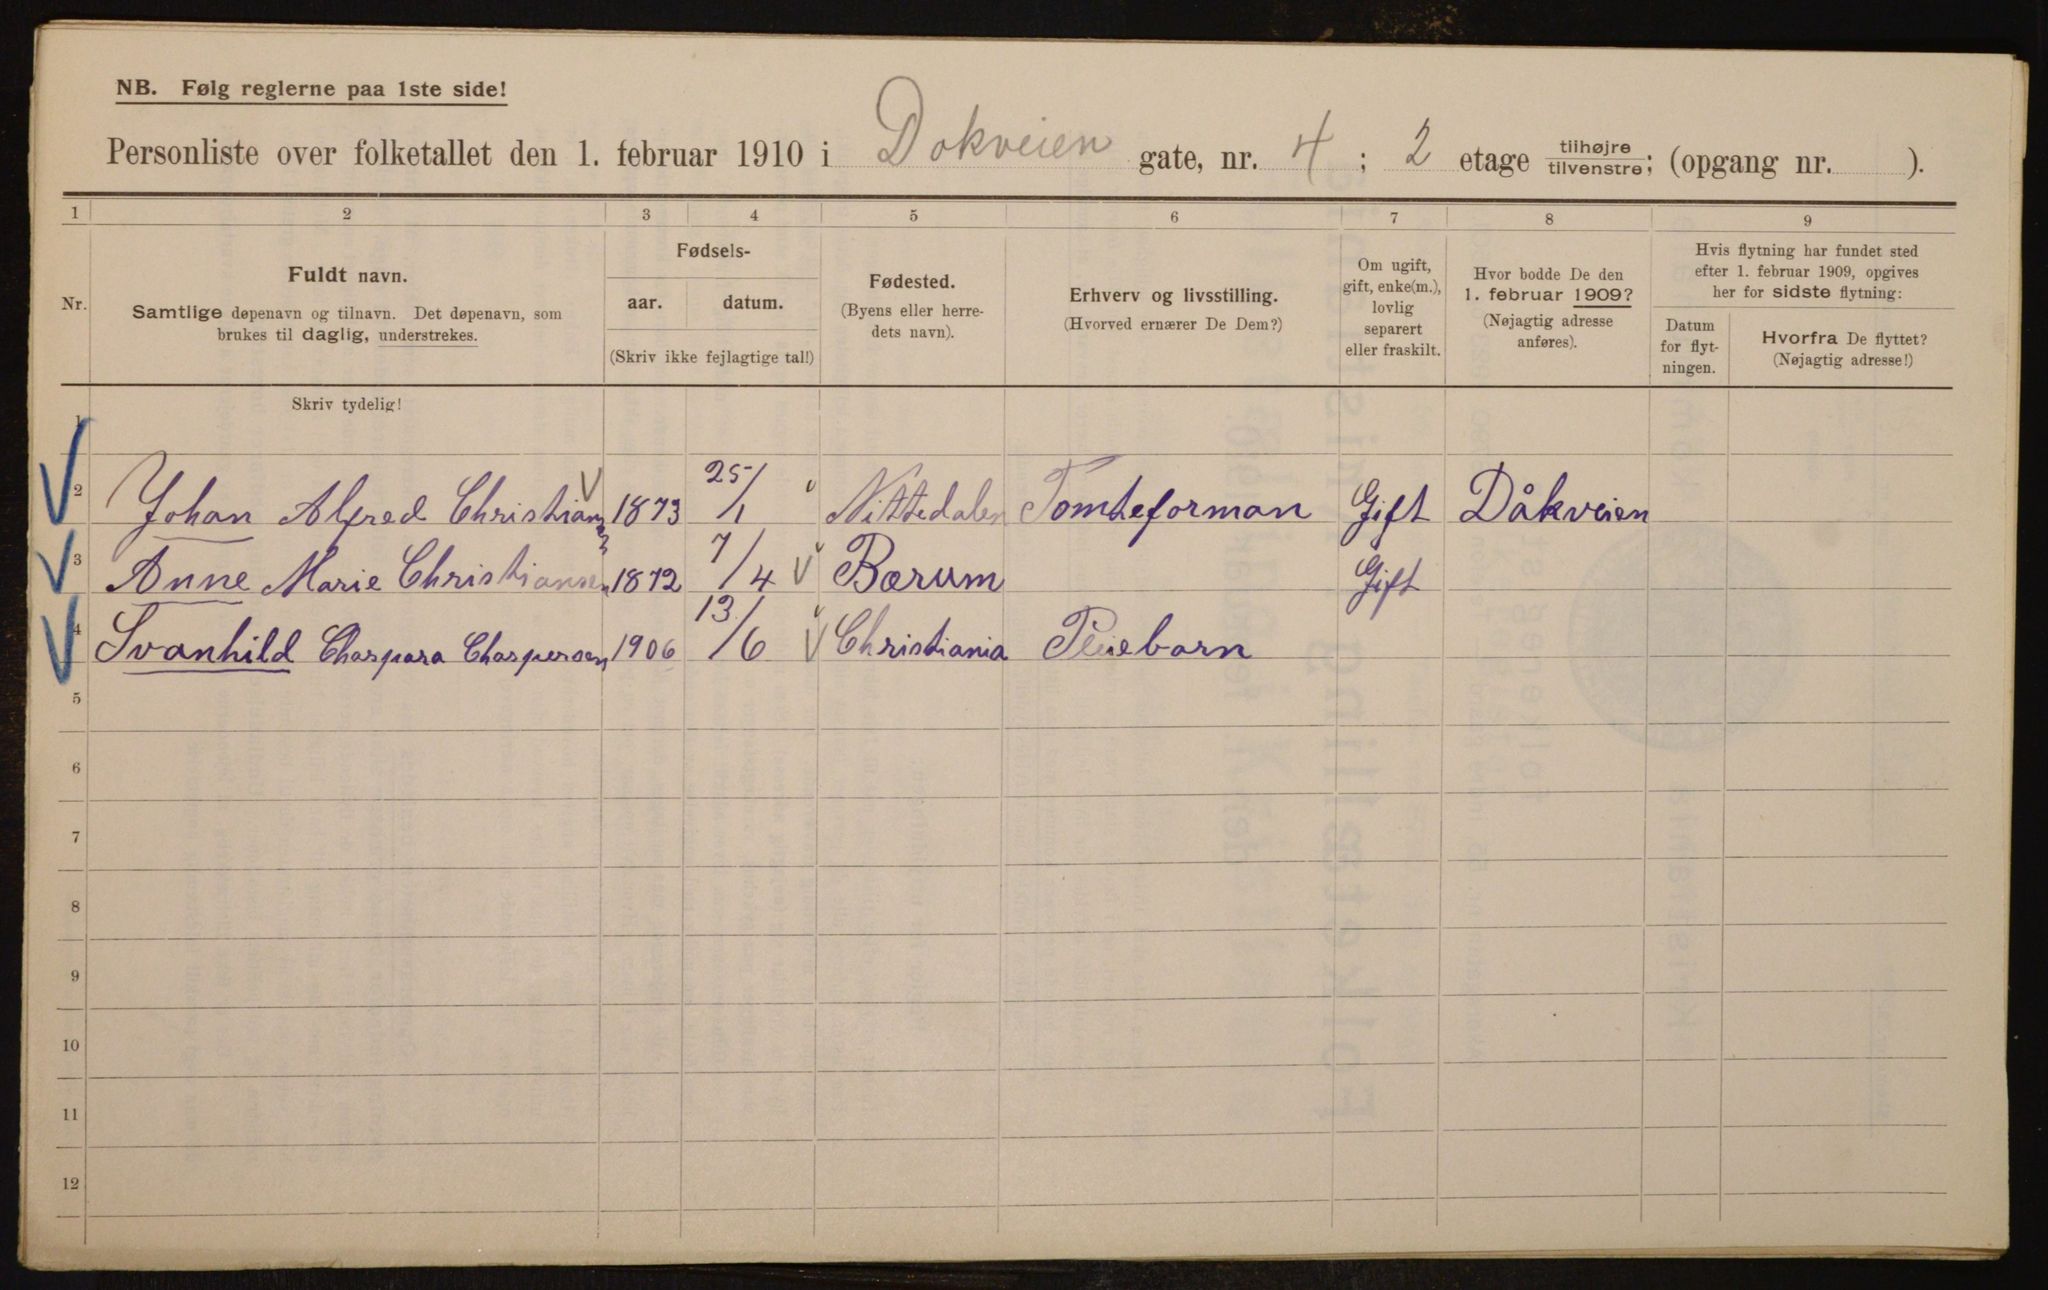 NB. Følg reglerne paa 1ste side!
Personliste over folketallet den 1. februar 1910 i Dokveien gate, nr. 4 ; 2 etage tilhøjre/tilvenstre; (opgang nr. ).
1 2 3 4 5 6 7 8 9
Nr.
Fuldt navn.
Samtlige døpenavn og tilnavn. Det døpenavn, som
brukes til daglig, understrekes.
Fødsels-
aar. datum.
(Skriv ikke fejlagtige tal!)
Fødested.
(Byens eller herre-
dets navn).
Erhverv og livsstilling.
(Hvorved ernærer De Dem?)
Om ugift,
gift, enke(m.),
lovlig
separert
eller fraskilt.
Hvor bodde De den
1. februar 1909?
(Nøjagtig adresse
anføres).
Hvis flytning har fundet sted
efter 1. februar 1909, opgives
her for sidste flytning:
Datum
for flyt-
ningen.
Hvorfra De flyttet?
(Nøjagtig adresse!)
Skriv tydelig!
1
2 Johan Alfred Christiansen 1873 25/1 Nittedalen Tomteforman Gift Dåkveien
3 Anne Marie Christiansen 1872 7/4 Bærum Gift
4 Svanhild Charpara Charpersen 1906 13/6 Christiania Pleiebarn
5
6
7
8
9
10
11
12